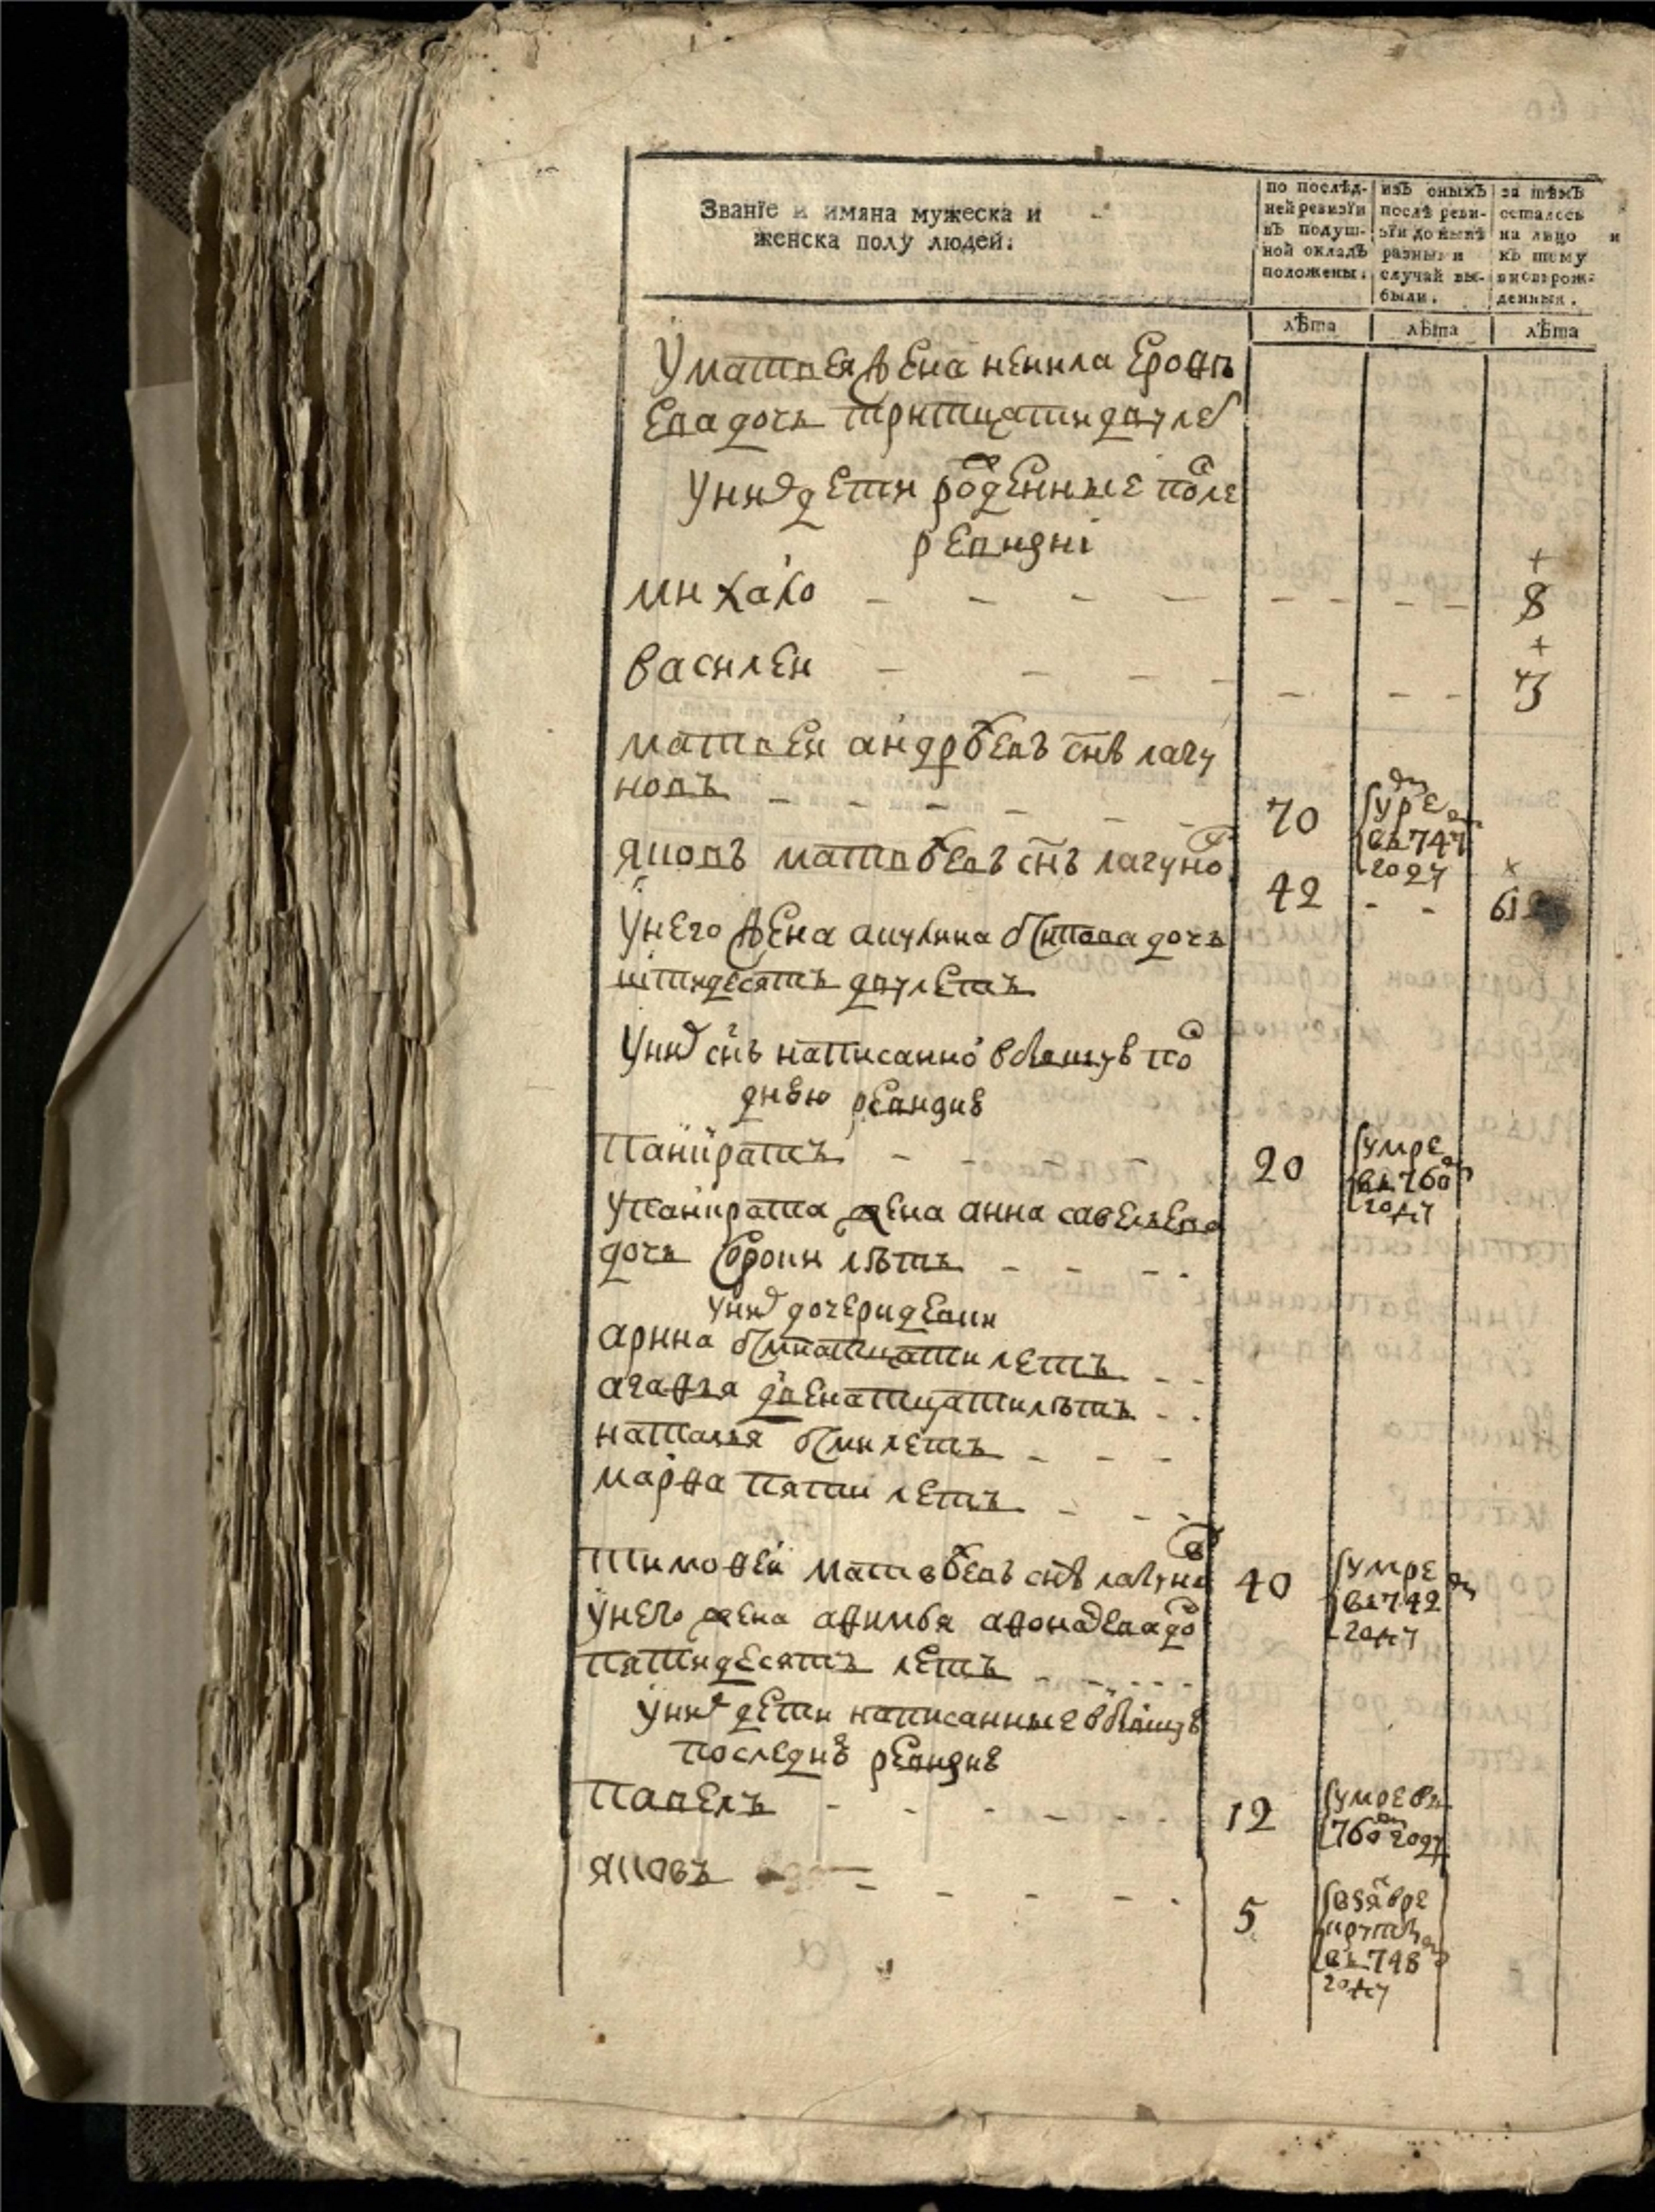 Званїе и имяна мужеска и
женска полу людей.
по послѣд-
ней ревизїи
въ подуш-
ной окладъ
положены.
изъ оныхъ
послѣ реви-
зїи до нынѣ
разными
случаи вы-
были.
за тѣмъ
осталось
на лицо и
къ тому
вновьрож-
денныя.
лѣта
лѣта
лѣта
У матвея жена ненила ерофѣ
ева дочь тритцати двулет
у них дети рожденные после
ревизиі
михаило - - - - - - - - 8
василеи - - - - - - - 3
матвеи андрѣевъ снъ лагу
новъ - - - - - 70
умре
въ 747
году
яковъ матвѣевъ снъ лагунов 42 - - 61
у него жена акулина дочь
пятидесятъ двулетъ
у них снъ написанной в бывшую по
днюю ревизию
панкратъ - - 20
умре
въ 760
году
у панкрата жена анна савельева
дочь сороки лѣтъ - - - -
у них дочери девки
арина семнатцати летъ - -
агафья двенатцатилѣтъ - -
наталья семи летъ - - -
марфа пяти летъ - - -
тимофеи матвѣевъ снъ лагунов 40
умре
въ 742
году
у него жена афимья афонасева до
пятидесятъ летъ - - - -
у них дети написанные в бывшую
последнюю ревизию
павелъ - - - - - 12
умре въ
760 году
яковъ - - - - - 5
взят в ре
круты
въ 748
году